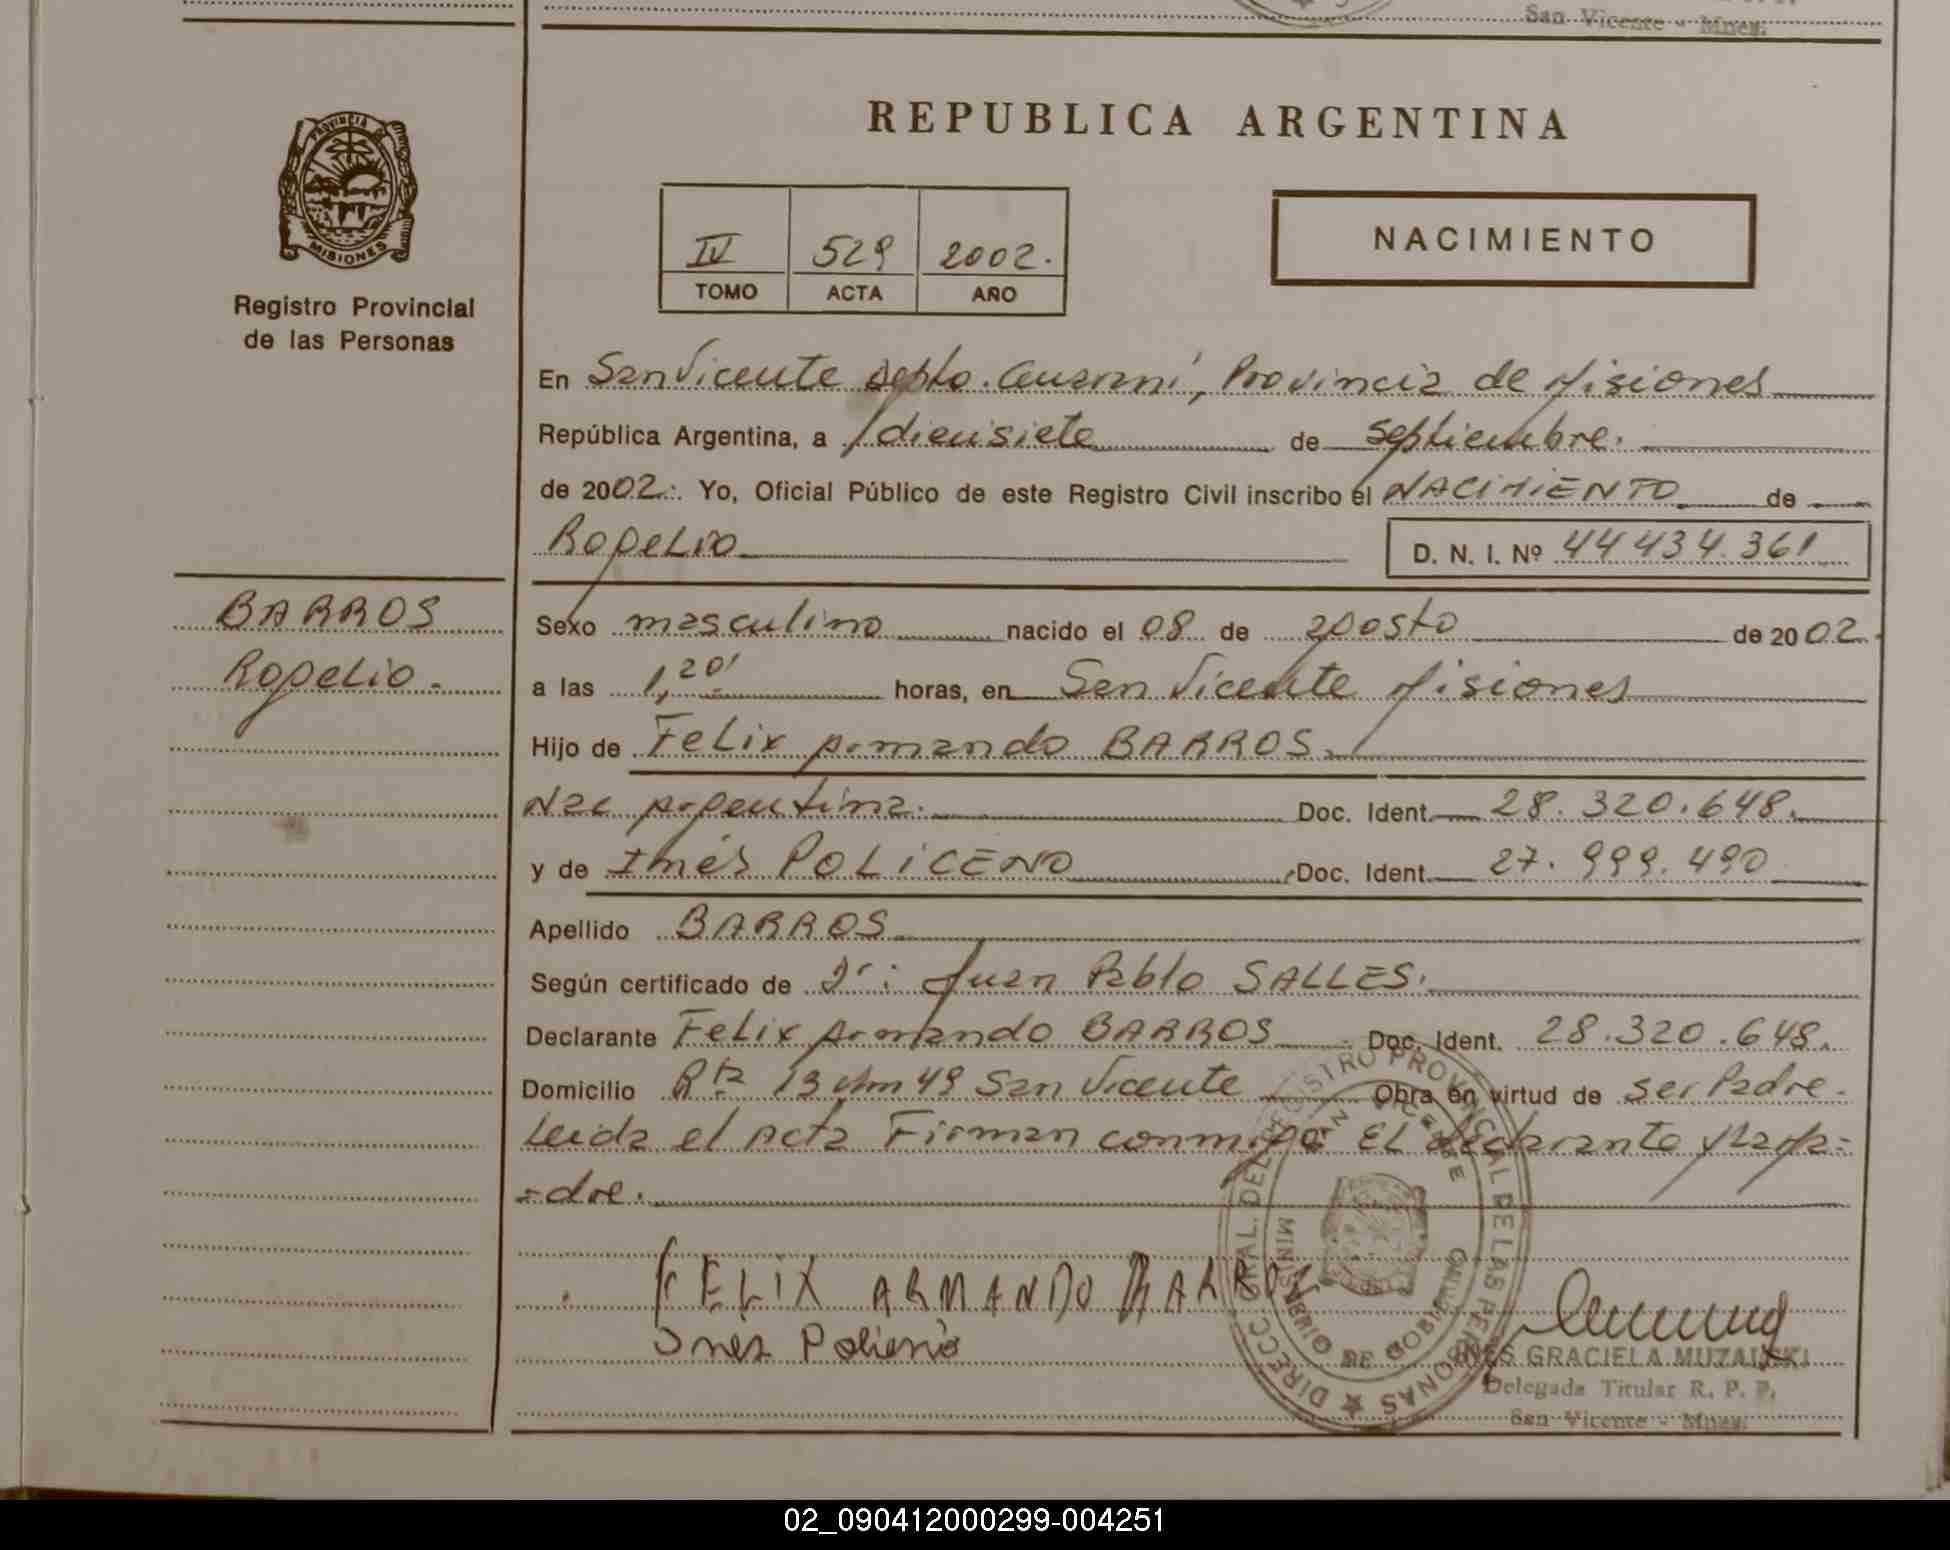 San Vicente - Mnes.
REPUBLICA ARGENTINA
PROVINCIA DE
MISIONES
Registro Provincial
de las Personas
IV 529 2002.
TOMO ACTA AÑO
NACIMIENTO
En San Vicente Depto. Guaraní, Provincia de Misiones
República Argentina, a diecisiete de septiembre.
de 2002. Yo, Oficial Público de este Registro Civil inscribo el NACIMIENTO de
Rogelio D. N. I. Nº 44434.361
BARROS
Rogelio.
Sexo masculino nacido el 08 de agosto de 2002.
a las 1,20' horas, en San Vicente Misiones
Hijo de Felix Armando BARROS.
Nac Argentina. Doc. Ident. 28.320.648.
y de Inés POLICENO Doc. Ident. 27.999.490
Apellido BARROS
Según certificado de Dr: Juan Pablo SALLES.
Declarante Felix Armando BARROS Doc. Ident. 28.320.648.
Domicilio Rta 13 Km 49 San Vicente Obra en virtud de ser Padre.
Leida el Acta Firman conmigo El declarante y la ma=
=dre.
FELIX ARMANDO BARROS
DIRECC. GRAL. DEL REGISTRO PROVINCIAL DE LAS PERSONAS
SAN VICENTE
MINISTERIO DE GOBIERNO
INES GRACIELA MUZALSKI
Delegada Titular R. P. P.
San Vicente - Mnes.
02_090412000299-004251